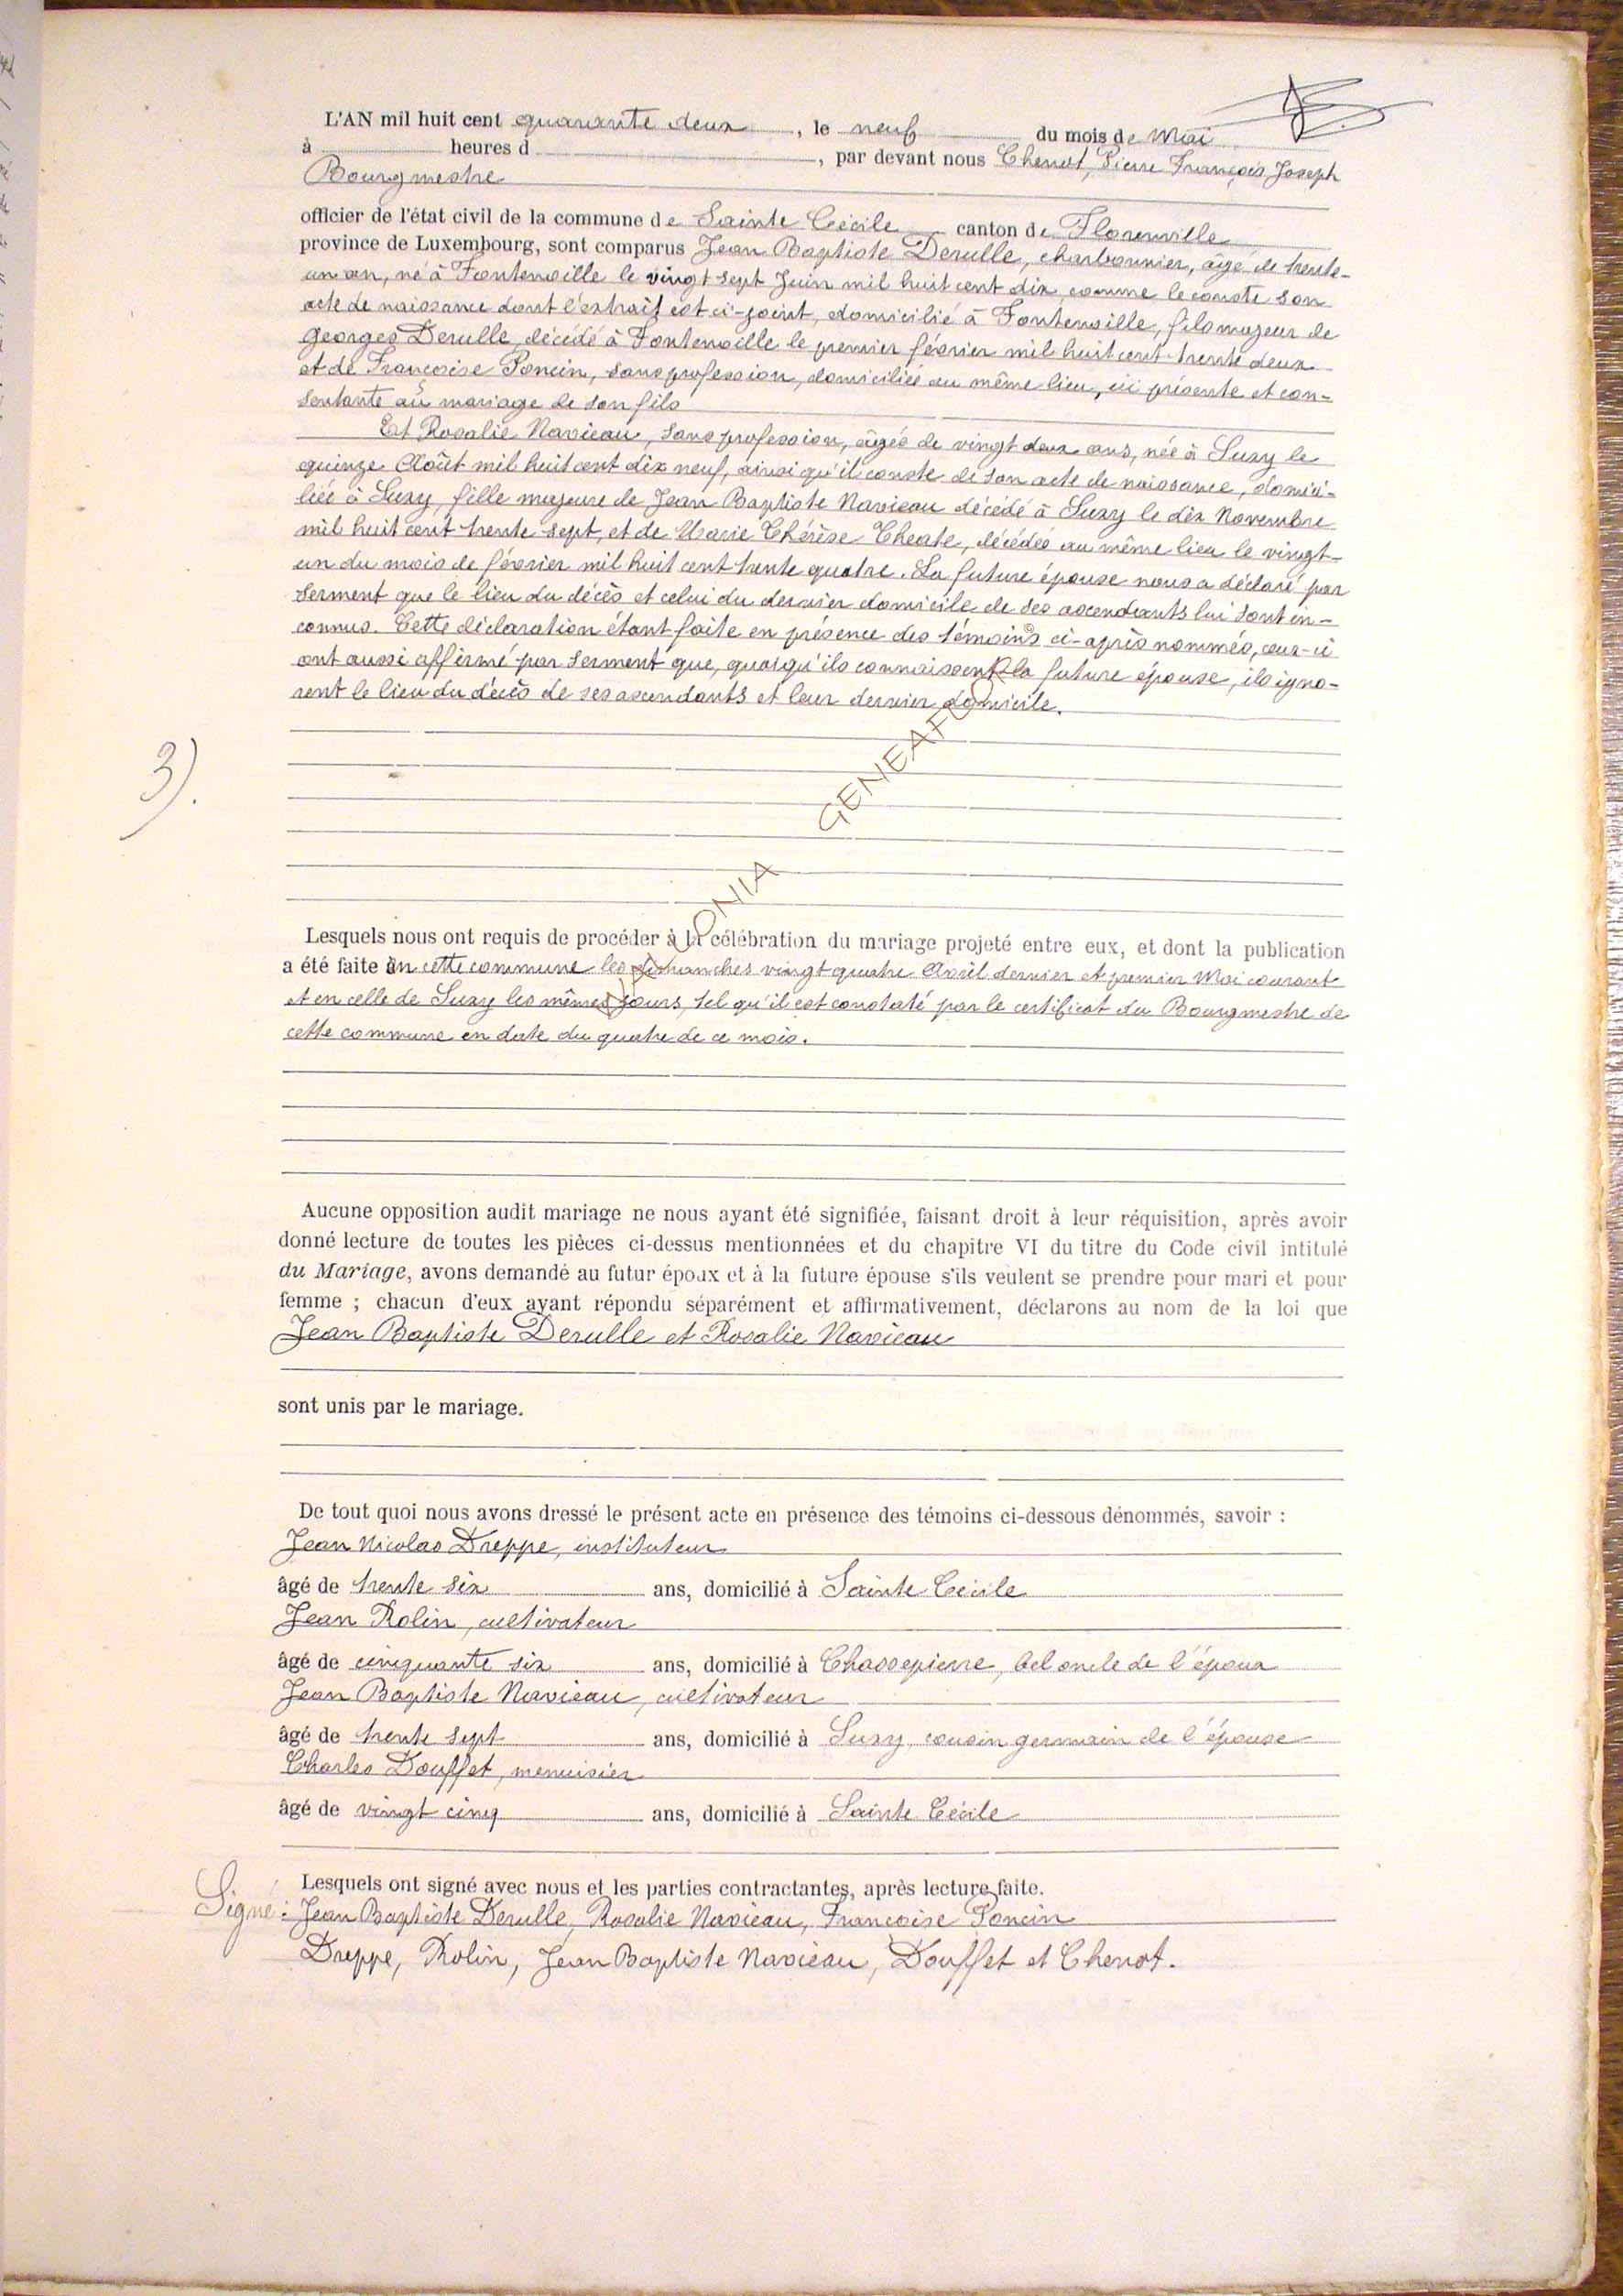 L'AN mil huit cent quarante deux, le neuf du mois de Mai
à heures d , par devant nous Chenot, Pierre François Joseph
Bourgmestre
officier de l'état civil de la commune de Sainte Cécile canton de Florenville
province de Luxembourg, sont comparus Jean Baptiste Derulle, charbonnier, âgé de trente-
un an, né à Fontenoille le vingt sept Juin mil huit cent dix, comme le conste son
acte de naissance dont l'extrait est ci-joint, domicilié à Fontenoille, fils majeur de
Georges Derulle, décédé à Fontenoille le premier février mil huit cent trente deux
et de Françoise Poncin, sans profession, domiciliée au même lieu, ici présente et con-
sentante au mariage de son fils
Et Rosalie Navieau, sans profession, âgée de vingt deux ans, née à Suxy le
quinze Août mil huit cent dix neuf, ainsi qu'il conste de son acte de naissance, domici-
liée à Suxy, fille majeure de Jean Baptiste Navieau décédé à Suxy le dix Novembre
mil huit cent trente sept, et de Marie Thérèse Theate, décédée au même lieu le vingt-
un du mois de février mil huit cent trente quatre. La future épouse nous a déclaré par
serment que le lieu du décès et celui du dernier domicile de ses ascendants lui sont in-
connus. Cette déclaration étant faite en présence des témoins ci-après nommés, ceux-ci
ont aussi affirmé par serment que, quoiqu'ils connaissent la future épouse, ils igno-
rent le lieu du décès de ses ascendants et leur dernier domicile.
3).
GENEAFLOR
Lesquels nous ont requis de procéder à la célébration du mariage projeté entre eux, et dont la publication
a été faite en cette commune les dimanches vingt quatre Avril dernier et premier Mai courant
et en celle de Suxy les mêmes jours, tel qu'il est constaté par le certificat du Bourgmestre de
cette commune en date du quatre de ce mois.
Aucune opposition audit mariage ne nous ayant été signifiée, faisant droit à leur réquisition, après avoir
donné lecture de toutes les pièces ci-dessus mentionnées et du chapitre VI du titre du Code civil intitulé
du Mariage, avons demandé au futur époux et à la future épouse s'ils veulent se prendre pour mari et pour
femme ; chacun d'eux ayant répondu séparément et affirmativement, déclarons au nom de la loi que
Jean Baptiste Derulle et Rosalie Navieau
sont unis par le mariage.
De tout quoi nous avons dressé le présent acte en présence des témoins ci-dessous dénommés, savoir :
Jean Nicolas Dreppe, instituteur
âgé de trente six ans, domicilié à Sainte Cécile
Jean Rolin, cultivateur
âgé de cinquante six ans, domicilié à Chassepierre, bel oncle de l'époux
Jean Baptiste Navieau, cultivateur
âgé de trente sept ans, domicilié à Suxy, cousin germain de l'épouse
Charles Douffet, menuisier
âgé de vingt cinq ans, domicilié à Sainte Cécile
Lesquels ont signé avec nous et les parties contractantes, après lecture faite.
Signé : Jean Baptiste Derulle, Rosalie Navieau, Françoise Poncin
Dreppe, Rolin, Jean Baptiste Navieau, Douffet et Chenot.